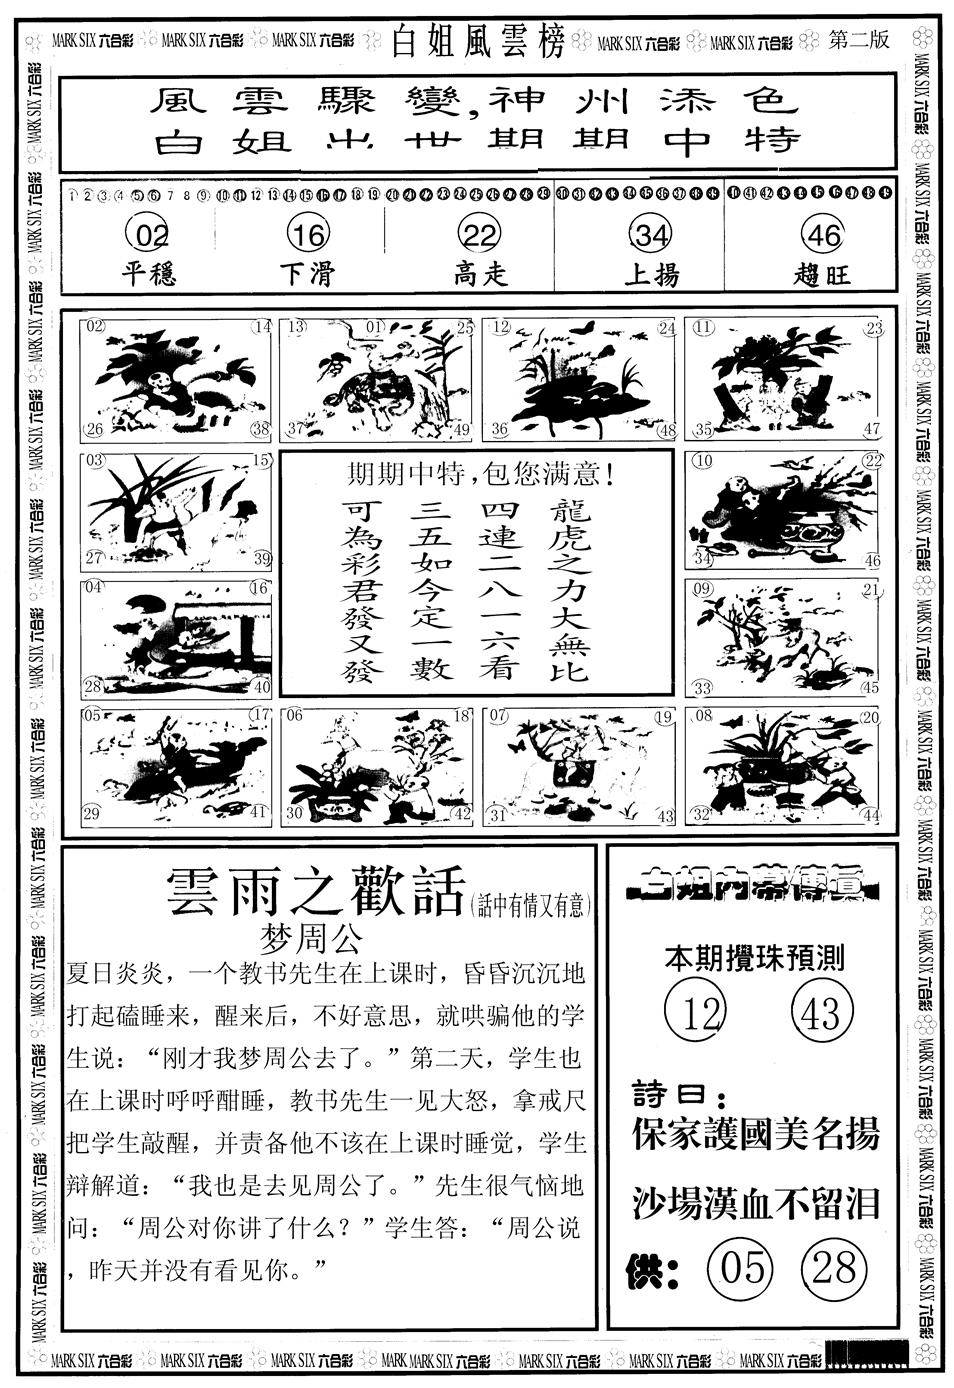 MARK SIX 六合彩 MARK SIX 六合彩 MARK SIX 六合彩 白姐風雲榜 MARK SIX 六合彩 MARK SIX 六合彩 第二版
風雲驟變,神州添色
白姐出世期期中特
1 2 3 4 5 6 7 8 9 10 11 12 13 14 15 16 17 18 19 20 21 22 23 24 25 26 27 28 29 30 31 32 33 34 35 36 37 38 39 40 41 42 43 44 45 46 47 48 49
02 16 22 34 46
平穩 下滑 高走 上揚 趨旺
02 14 13 01 25 12 24 11 23
26 38 37 49 36 48 35 47
03 15
27 39
04 16
28 40
期期中特,包您满意!
龍虎之力大無比
四連二八一六看
三五如今定一數
可為彩君發又發
10 22
34 46
09 21
33 45
05 17 06 18 07 19 08 20
29 41 30 42 31 43 32 44
雲雨之歡話(話中有情又有意)
梦周公
夏日炎炎，一个教书先生在上课时，昏昏沉沉地
打起磕睡来，醒来后，不好意思，就哄骗他的学
生说：“刚才我梦周公去了。”第二天，学生也
在上课时呼呼酣睡，教书先生一见大怒，拿戒尺
把学生敲醒，并责备他不该在上课时睡觉，学生
辩解道：“我也是去见周公了。”先生很气恼地
问：“周公对你讲了什么？”学生答：“周公说
，昨天并没有看见你。”
白姐内幕傳真
本期攪珠預測
12 43
詩曰：
保家護國美名揚
沙場漢血不留泪
供： 05 28
MARK SIX 六合彩 MARK SIX 六合彩 MARK SIX 六合彩 MARK MARK SIX 六合彩 MARK SIX 六合彩 MARK SIX 六合彩 MARK SIX 六合彩